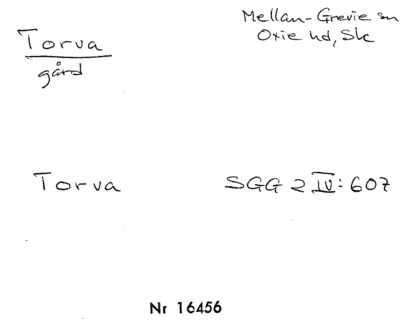 Torva
gård
Mellan-Grevie sn
Oxie hd, Sk
Torva
SGG 2 IV: 607
Nr 16456